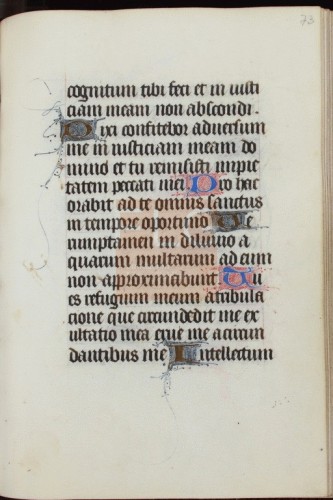 73
cognitum tibi feci et in iusti
ciam meam non abscondi.
Dixi confitebor adversum
me in iusticiam meam do
mino et tu remisisti impie
tatem peccati mei Pro hac
orabit ad te omnis sanctus
in tempore oportuno Ve
rumptamen in diluvio a
quarum multarum ad eum
non approximabunt Tu
es refugium meum a tribula
cione que circundedit me ex
ultatio mea erue me a circun
dantibus me Intellectum